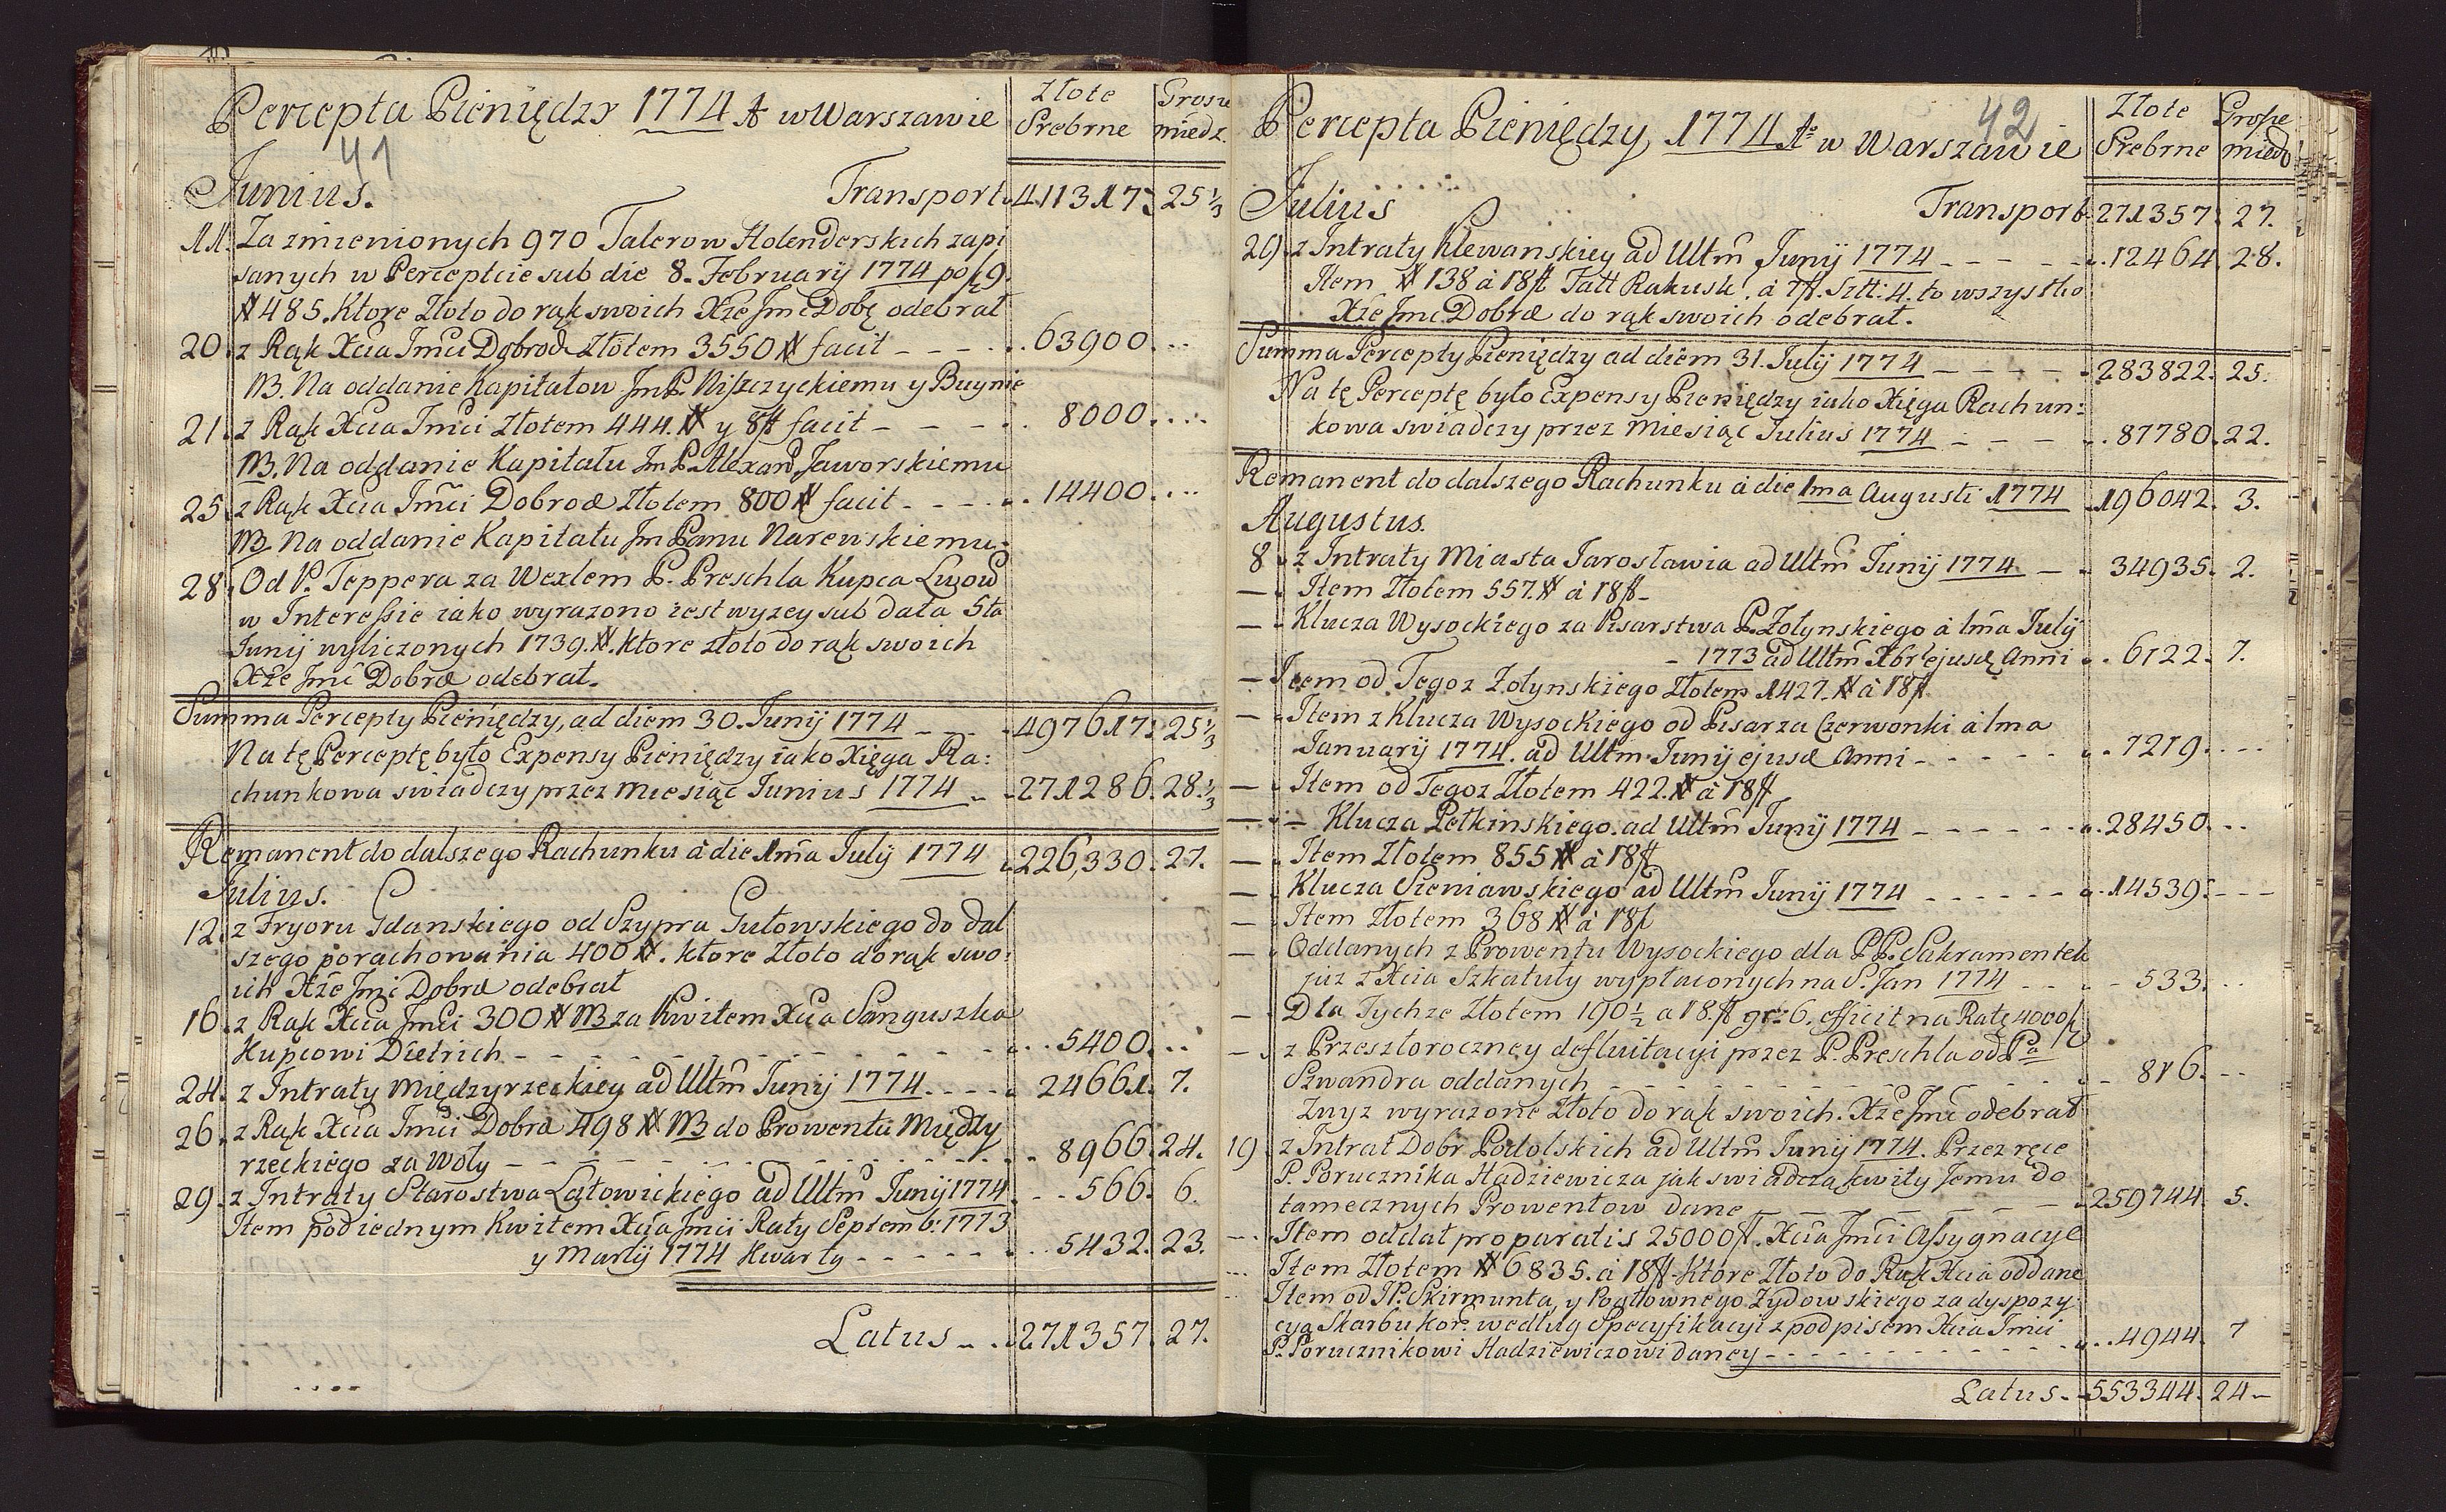 Percepta Pieniędzy 1774 A° w Warszawie
Złote Srebrne
Grosze miedz.
41
Junius.
Transport 411317: 25⅓
11. Za zmienionych 970 Talerow Holenderskich zapi
sanych w Perceptcie sub die 8. February 1774 po ƒ 9.
# 485. Ktore Złoto do rąk swoich Xże Jmć Dobę odebrał
20. z Rąk Xcia Jmći Dobrod Złotem 3550 # facit - - - 63900. ..
NB. Na oddanie Kapitałow Jm P. Niszczyckiemu y Buynie
21. z Rąk Xcia Jmći Złotem 444. # y 8 ƒt facit - - - 8000. ...
NB. Na oddanie Kapitału Jm P. Alexand Jaworskiemu
25. z Rąk Xcia Jmći Dobrod Złotem 800 # facit - - - 14400. ...
NB. Na oddanie Kapitału Jm Panu Narewskiemu.
28. Od P. Teppera za Wexlem P. Preschla Kupca Lwow
w Interessie iako wyrazono iest wyzey sub data 5ta
Junij wyliczonych 1739. #. ktore złoto do rąk swoich
Xże Jmć Dobrd odebrał.
Summa Percepty Pieniędzy, ad diem 30. Junij 1774 - - 497617: 25⅓
Na tę Perceptę było Expensy Pieniędzy iako Xięga Ra:
chunkowa swiadczy przez Miesiąc Junius 1774 - 271286. 28.⅓
Remanent do dalszego Rachunku à die 1ma July 1774 226,330. 27.
Julius.
12. z Fryoru Gdanskiego od Szypra Gutowskiego do dal
szego porachowania 400 #. ktore Złoto do rąk swo:
ich Xże Jmć Dobrd odebrał
16. z Rąk Xcia Jmći 300 # NB za Kwitem Xcia Sanguszka
Kupcowi Dietrich - - - 5400. ..
24. z Intraty Międzyrzeckiey ad Ultm̃ Junij 1774. - - - 24661. 7.
26. z Rąk Xcia Jmći Dobrd 498 # NB do Prowentu Między
rzeckiego za Woły - - - 8966. 24.
29. z Intraty Starostwa Latowickiego ad Ultm̃ Junij 1774 - - 566. 6.
Item pod iednym Kwitem Xcia Jmći Raty Septemb: 1773
y Martij 1774 Kwarty - - - 5432. 23.
Latus - . 271357. 27.
Percepta Pieniędzy 1774 A° w Warszawie
42
Złote Srebrne
Grosze miedz
Julius
Transport 271357. 27.
29. z Intraty Klewanskiey ad Ultm̃ Junij 1774 - - - 12464. 28.
Item # 138 à 18 ƒt Tall Rakusk. à 7 ƒt. Sztt: 4. to wszystko
Xże Jmć Dobrd do rąk swoich odebrał.
Summa Percepty Pieniędzy ad diem 31. July 1774 - - - 283822. 25.
Na tę Perceptę było Expensy Pieniędzy iako Xięga Rachun:
kowa swiadczy przez Miesiąc Julius 1774 - - - 87780. 22.
Remanent do dalszego Rachunku à die 1ma Augusti 1774 196042. 3.
Augustus.
8 z Intraty Miasta Jarosławia ad Ultm̃ Junij 1774 - 34935. 2.
— Item Złotem 557. # à 18 ƒt -
— Klucza Wysockiego za Pisarstwa P. Zołynskiego à 1ma July
1773 ad Ultm̃ Xbr ejusd Anni 6122. 7.
— Item od Tegoz Zołynskiego Złotem 1427. # à 18 ƒt.
— Item z Klucza Wysockiego od Pisarza Czerwonki à 1ma
Januarij 1774. ad Ultm̃ Junij ejusd Anni - - - 7219. ...
— Item od Tegoz Złotem 422. # à 18 ƒt
— Klucza Pełkinskiego. ad Ultm̃ Junij 1774 - - - 28450. ..
— Item Złotem 855 # à 18 ƒt
— Klucza Sieniawskiego ad Ultm̃ Junij 1774 - - - 14539: - - -
— Item Złotem 368 # à 18 ƒt
— Oddanych z Prowentu Wysockiego dla PP. Sakramentek
juz z Xcia Szkatuły wypłaconych na S. Jan 1774 - - 533. ..
— Dla Tychze Złotem 190½ a 18. ƒt gr: 6. efficit na Ratę 4000 ƒt
— z Przeszłoroczney defluitacyi przez P. Preschla od Pa
Szwandra oddanych - - - 816. --
Zwyz wyrazone Złoto do rąk swoich. Xże Jmć odebrał
19. z Intrat Dobr Podolskich ad Ultm̃ Junij 1774. Przez ręce
P. Porucznika Hadziewicza jak swiadczą kwity Jemu do
tamecznych Prowentow dane - - - 259744. 5.
Item oddał pro paratis 25000 ƒt. Xcia Jmći Assygnacye
Item Złotem # 6835. à 18 ƒt. Ktore Złoto do Rąk Xcia oddane
Item od JP. Skirmunta, y Pogłownego Zydowskiego za dyspozy
cyą Skarbu Kor. według Specyfikacyi z podpisem Xcia Jmći
P. Porucznikowi Hadziewiczowi daney - - - 4944. 7
Latus. - 553344. 24 -